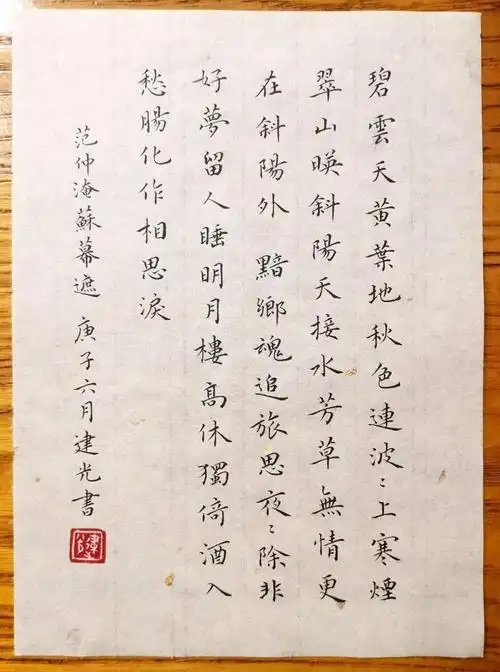 碧雲天黃葉地秋色連波﹕上寒煙
翠山暎斜陽天接水芳草無情更
在斜陽外 黯鄉魂追旅思夜﹕除非
好夢留人睡明月樓高休獨倚酒入
愁腸化作相思淚
范仲淹蘇幕遮 庚子六月建光書